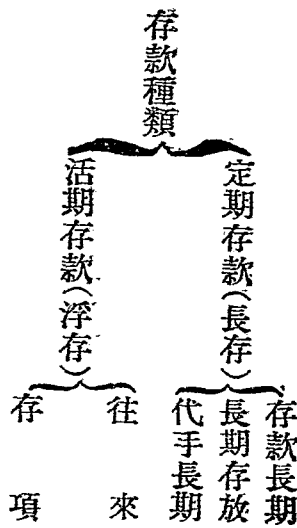 存款種類
定期存款(長存)
存款長期
長期存放
代手長期
活期存款(浮存)
往來
存項